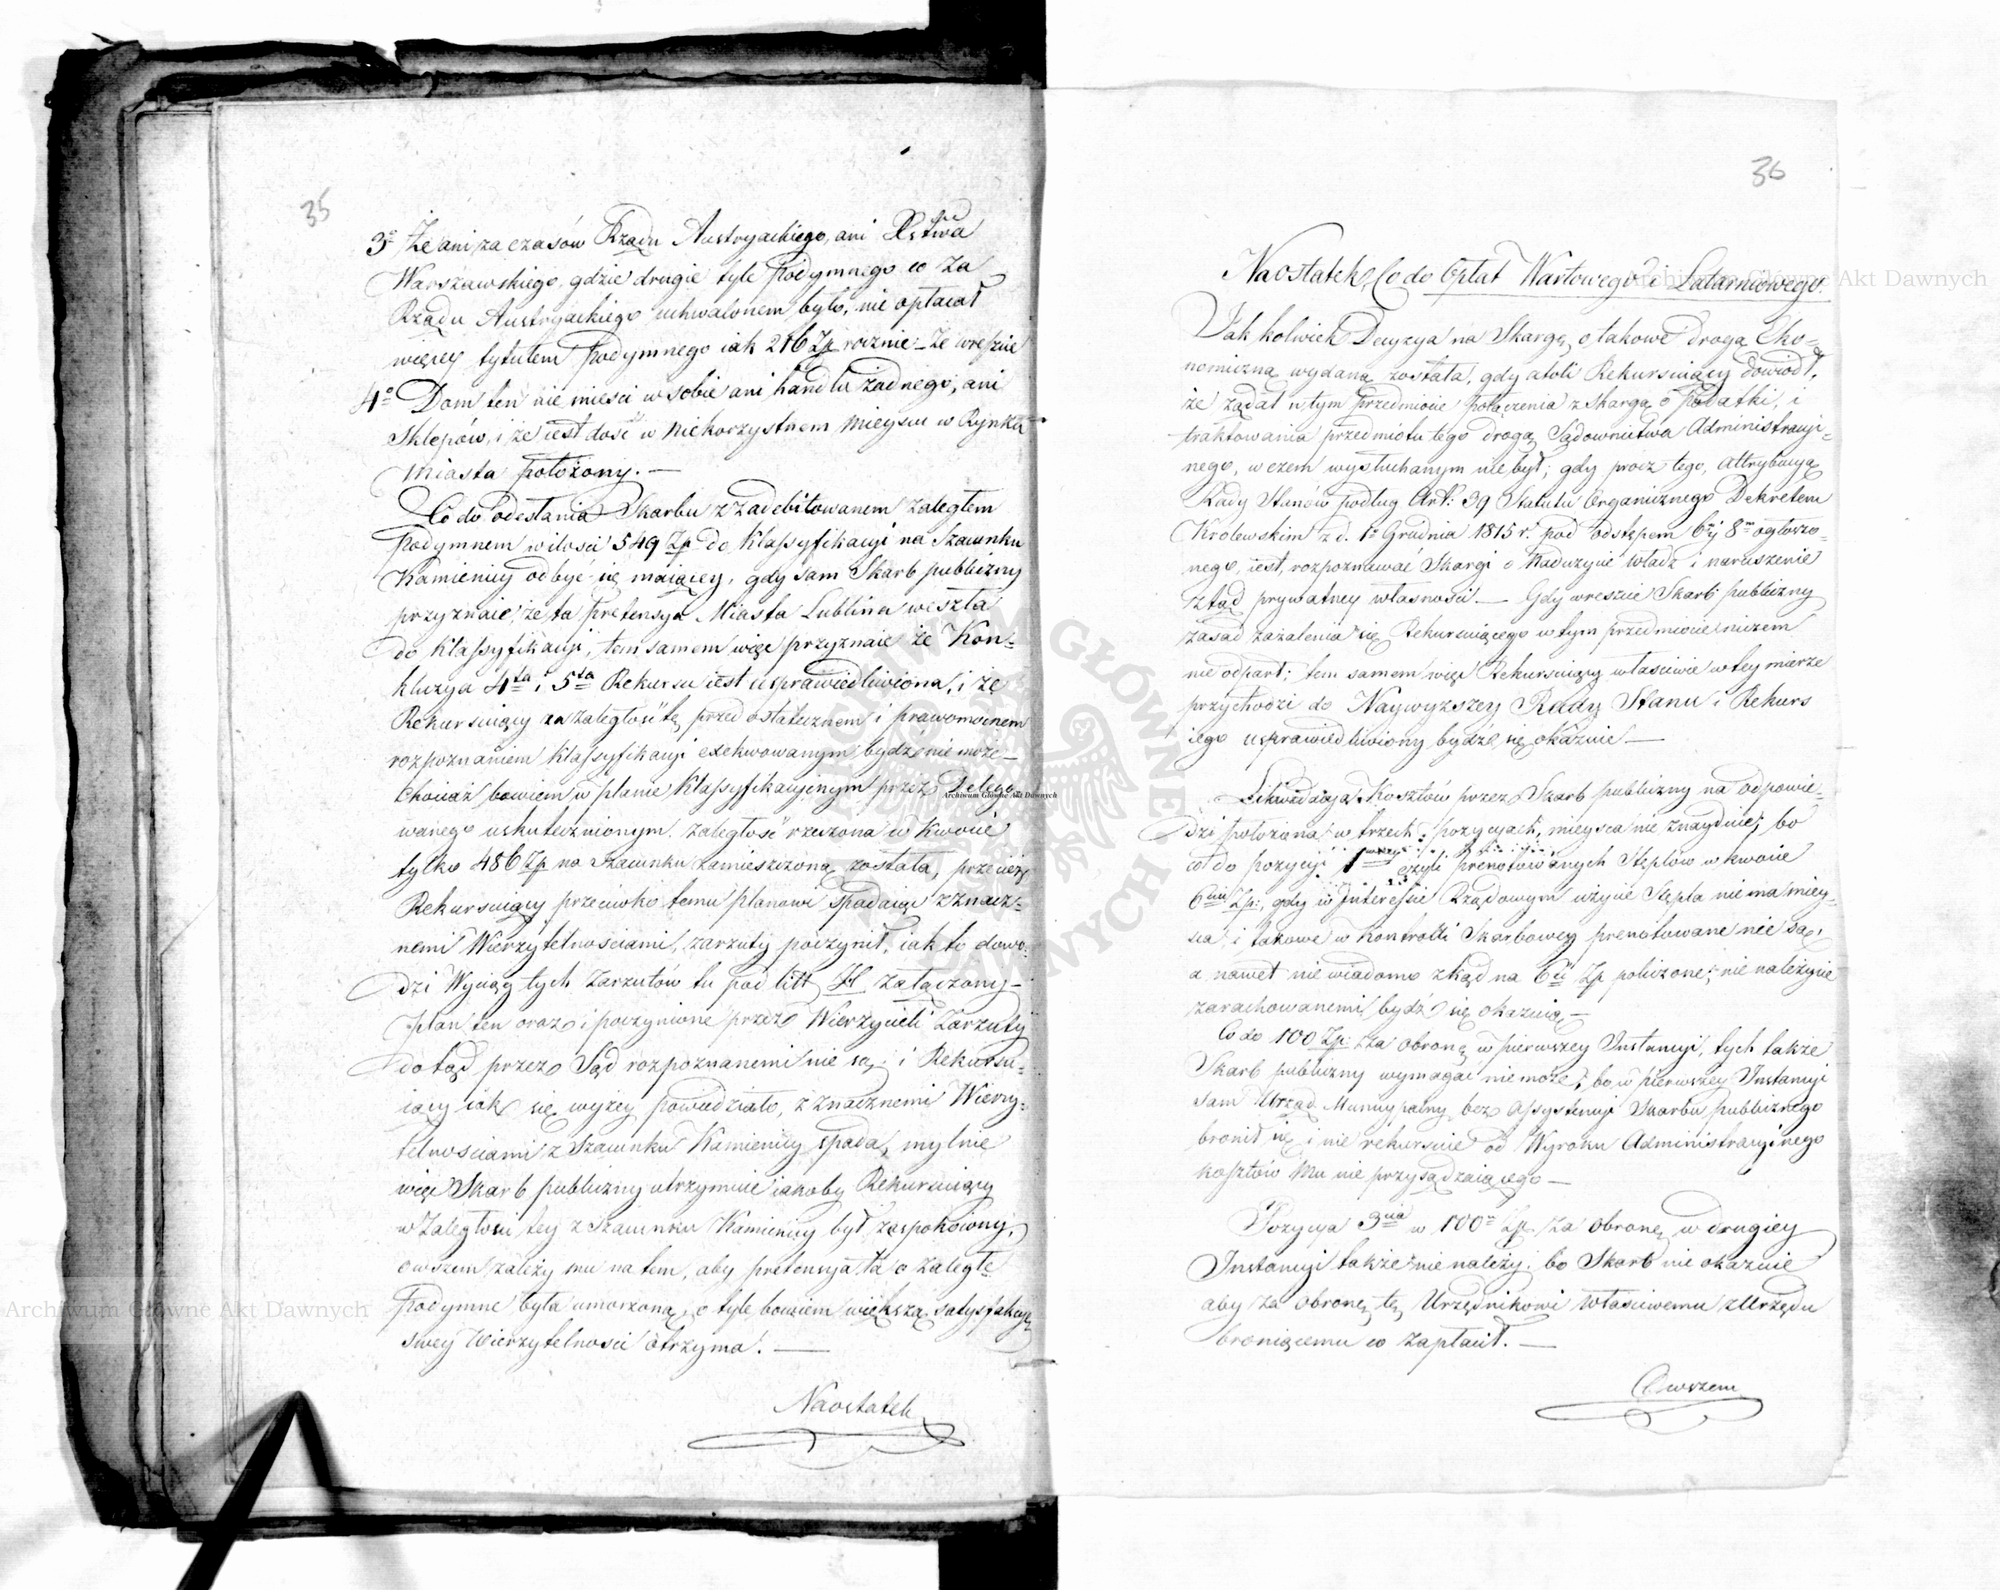 35
3o Że ani za czasów Rządu Austryackiego, ani Xstwa
Warszawskiego, gdzie drugie tyle Podymnego co za
Rządu Austryackiego uchwalonem było, nie opłacał
więcey tytułem Podymnego iak 216 Zp rocznie – że wreszcie
4o Dom ten nie mieści w sobie ani handlu żadnego, ani
Sklepów, i że iest dość w niekorzystnem mieyscu w Rynku
Miasta położony. —
Co do odesłania Skarbu z zadebitowanem zaległem
Podymnem w ilości 549 Zp do Klassyfikacyi na Szacunku
Kamienicy odbyć się maiącey, gdy sam Skarb publiczny
przyznaie, że ta pretensya Miasta Lublina weszła
do Klassyfikacyi, tem samem więc przyznaie że Kon-
kluzya 4ta i 5ta Rekursu iest usprawiedliwiona, i że
Rekursuiący za zaległość tę przed ostatecznem i prawomocnem
rozpoznaniem Klassyfikacyi exekwowanym bydź nie może –
Chociaż bowiem w planie Klassyfikacyinym przez Delego-
wanego uskutecznionym zaległość rzeczona w kwocie
tylko 486 Zp na Szacunku zamieszczoną została, przecież
Rekursuiący przeciwko temu planowi spadaiąc z znacz-
nemi Wierzytelnościami, zarzuty poczynił, iak to dowo-
dzi Wyciąg tych Zarzutów tu pod litt H załączony –
plan ten oraz i poczynione przez Wierzycieli Zarzuty
dotąd przez Sąd rozpoznanemi nie są; i Rekursu-
iący iak się wyżey powiedziało, z znacznemi Wierzy-
telnościami z Szacunku Kamienicy spada, mylnie
więc Skarb publiczny utrzymuie iakoby Rekursuiący
w Zaległości tey z Szacunku Kamienicy był zaspokoiony,
owszem zależy mu na tem, aby pretensya ta o zaległe
Podymne była umorzoną, o tyle bowiem większą satysfakcyę
swey Wierzytelności otrzyma. —
Naostatek
36
Naostatek, Co do Opłat Wartowego i Latarniowego.
Jakkolwiek Decyzya na Skargę o takowe drogą Eko-
nomiczną wydaną została, gdy atoli Rekursuiący dowiodł,
że żądał w tym przedmiocie połączenia z Skargą o Podatki, i
traktowania przedmiotu tego drogą Sądownictwa Administracyi-
nego, w czem wysłuchanym nie był; gdy prócz tego, attrybucyą
Rady Stanów podług Art: 39 Statutu Organicznego Dekretem
Królewskim z d. 1o Grudnia 1815 r. pod odstępem 6ym 8m ogłoszo-
nego, iest, rozpoznawać Skargi o Nadużycie władz i naruszenie
ztąd prywatney własności — Gdy wreszcie Skarb publiczny
zasad zażalenia się Rekursuiącego w tym przedmiocie niczem
nie odparł; tem samem więc Rekursuiący właściwie w tey mierze
przychodzi do Naywyższey Rady Stanu i Rekurs
iego usprawiedliwiony bydź się okazuie —
Likwidacya Kosztów przez Skarb publiczny na odpowie-
dzi położona w trzech pozycyach, mieysca nie znayduie; bo
co do pozycyi 1 czyli prenotowanych Stęplów w kwocie
6ciu Zp: gdy w Interessie Rządowym użycie Stępla nie ma miey-
sca i takowe w Kontrolli Skarbowey prenotowane nie są,
a nawet nie wiadomo zkąd na 6ciu Zp policzone; nie należycie
zarachowanemi bydź się okazuią. —
Co do 100 Zp: za obronę w pierwszey Instancyi, tych także
Skarb publiczny wymagać nie może, bo w pierwszey Instancyi
sam Urząd Municypalny bez Assystencyi Skarbu publicznego
bronił się i nie rekursuie od Wyroku Administracyinego
kosztów Mu nie przysądzaiącego —
Pozycya 3cia w 100 Zp. za obronę w drugiey
Instancyi także nie należy; bo Skarb nie okazuie
aby za obronę tę Urzędnikowi właściwemu z Urzędu
broniącemu co zapłacił. —
Owszem
Archiwum Główne Akt Dawnych
Archiwum Główne Akt Dawnych
Archiwum Główne Akt Dawnych